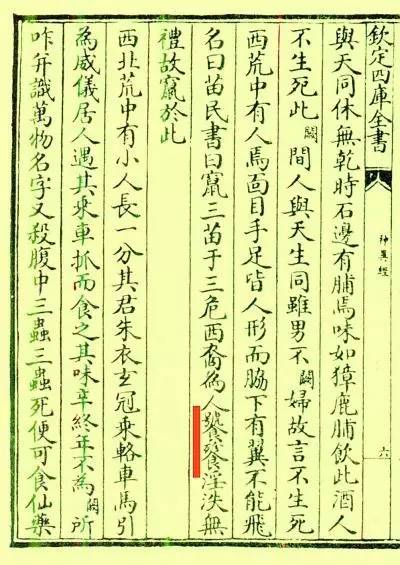 欽定四庫全書
神異經
六
與天同休無乾時石邊有脯焉味如獐鹿脯飲此酒人
不生死此闕間人與天生同雖男不闕婦故言不生死
西荒中有人焉面目手足皆人形而脇下有翼不能飛
名曰苗民書曰竄三苗于三危西裔為人饕餮淫泆無
禮故竄於此
西北荒中有小人長一分其君朱衣玄冠乘輅車馬引
為威儀居人遇其乘車抓而食之其味辛終年不為闕所
咋并識萬物名字又殺腹中三蟲三蟲死便可食仙藥